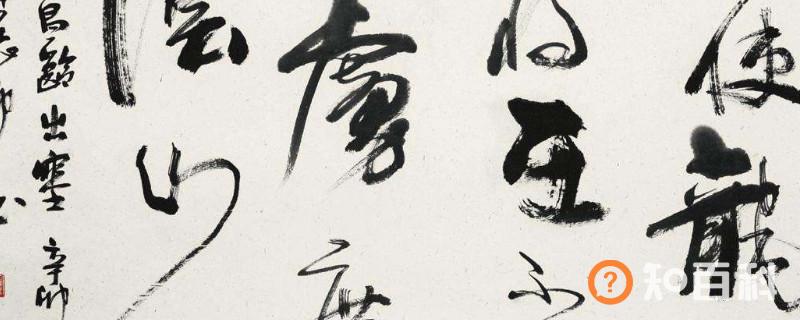 使龍
將在不
馬度
陰山
昌齡出塞 辛卯
?知百科